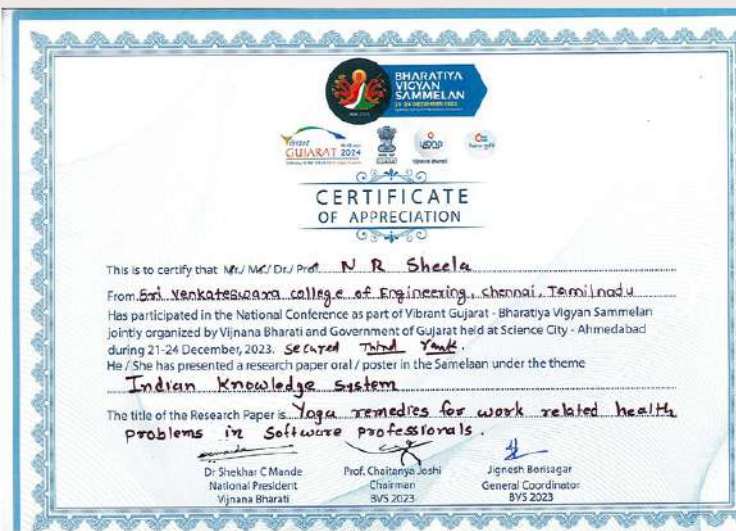 BHARATIYA
VIGYAN
SAMMELAN
21-24 DECEMBER 2023
VIBRANT
GUJARAT 2024
CERTIFICATE
OF APPRECIATION
This is to certify that Mr./ Ms./ Dr./ Prof. N R Sheela
From Sri Venkateswara college of Engineering, chennai, Tamilnadu
Has participated in the National Conference as part of Vibrant Gujarat - Bharatiya Vigyan Sammelan
jointly organized by Vijnana Bharati and Government of Gujarat held at Science City - Ahmedabad
during 21-24 December, 2023. Secured Third Rank.
He / She has presented a research paper oral / poster in the Samelaan under the theme
Indian Knowledge System
The title of the Research Paper is Yoga remedies for work related health
problems in Software professionals.
Dr Shekhar C Mande
National President
Vijnana Bharati
Prof. Chaitanya Joshi
Chairman
BVS 2023
Jignesh Borisagar
General Coordinator
BVS 2023